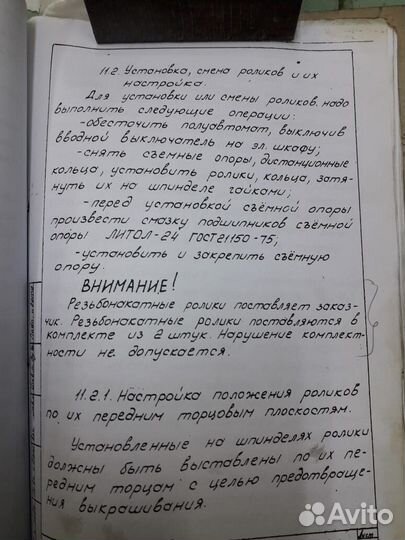 11.2. Установка, смена роликов и их
настройка.
Для установки или смены роликов надо
выполнить следующие операции:
-обесточить полуавтомат, выключив
вводной выключатель на эл. шкафу;
-снять съемные опоры, дистанционные
кольца, установить ролики, кольца, затя-
нуть их на шпинделе гайками;
-перед установкой съёмной опоры
произвести смазку подшипников съёмной
опоры ЛИТОЛ-24 ГОСТ21150-75;
-установить и закрепить съёмную
опору.
ВНИМАНИЕ!
Резьбонакатные ролики поставляет заказ-
чик. Резьбонакатные ролики поставляются в
комплекте из 2 штук. Нарушение комплект-
ности не допускается.
11.2.1. Настройка положения роликов
по их передним торцовым плоскостям.
Установленные на шпинделях ролики
должны быть выставлены по их пе-
редним торцам с целью предотвраще-
ния выкрашивания.
Лист
Avito